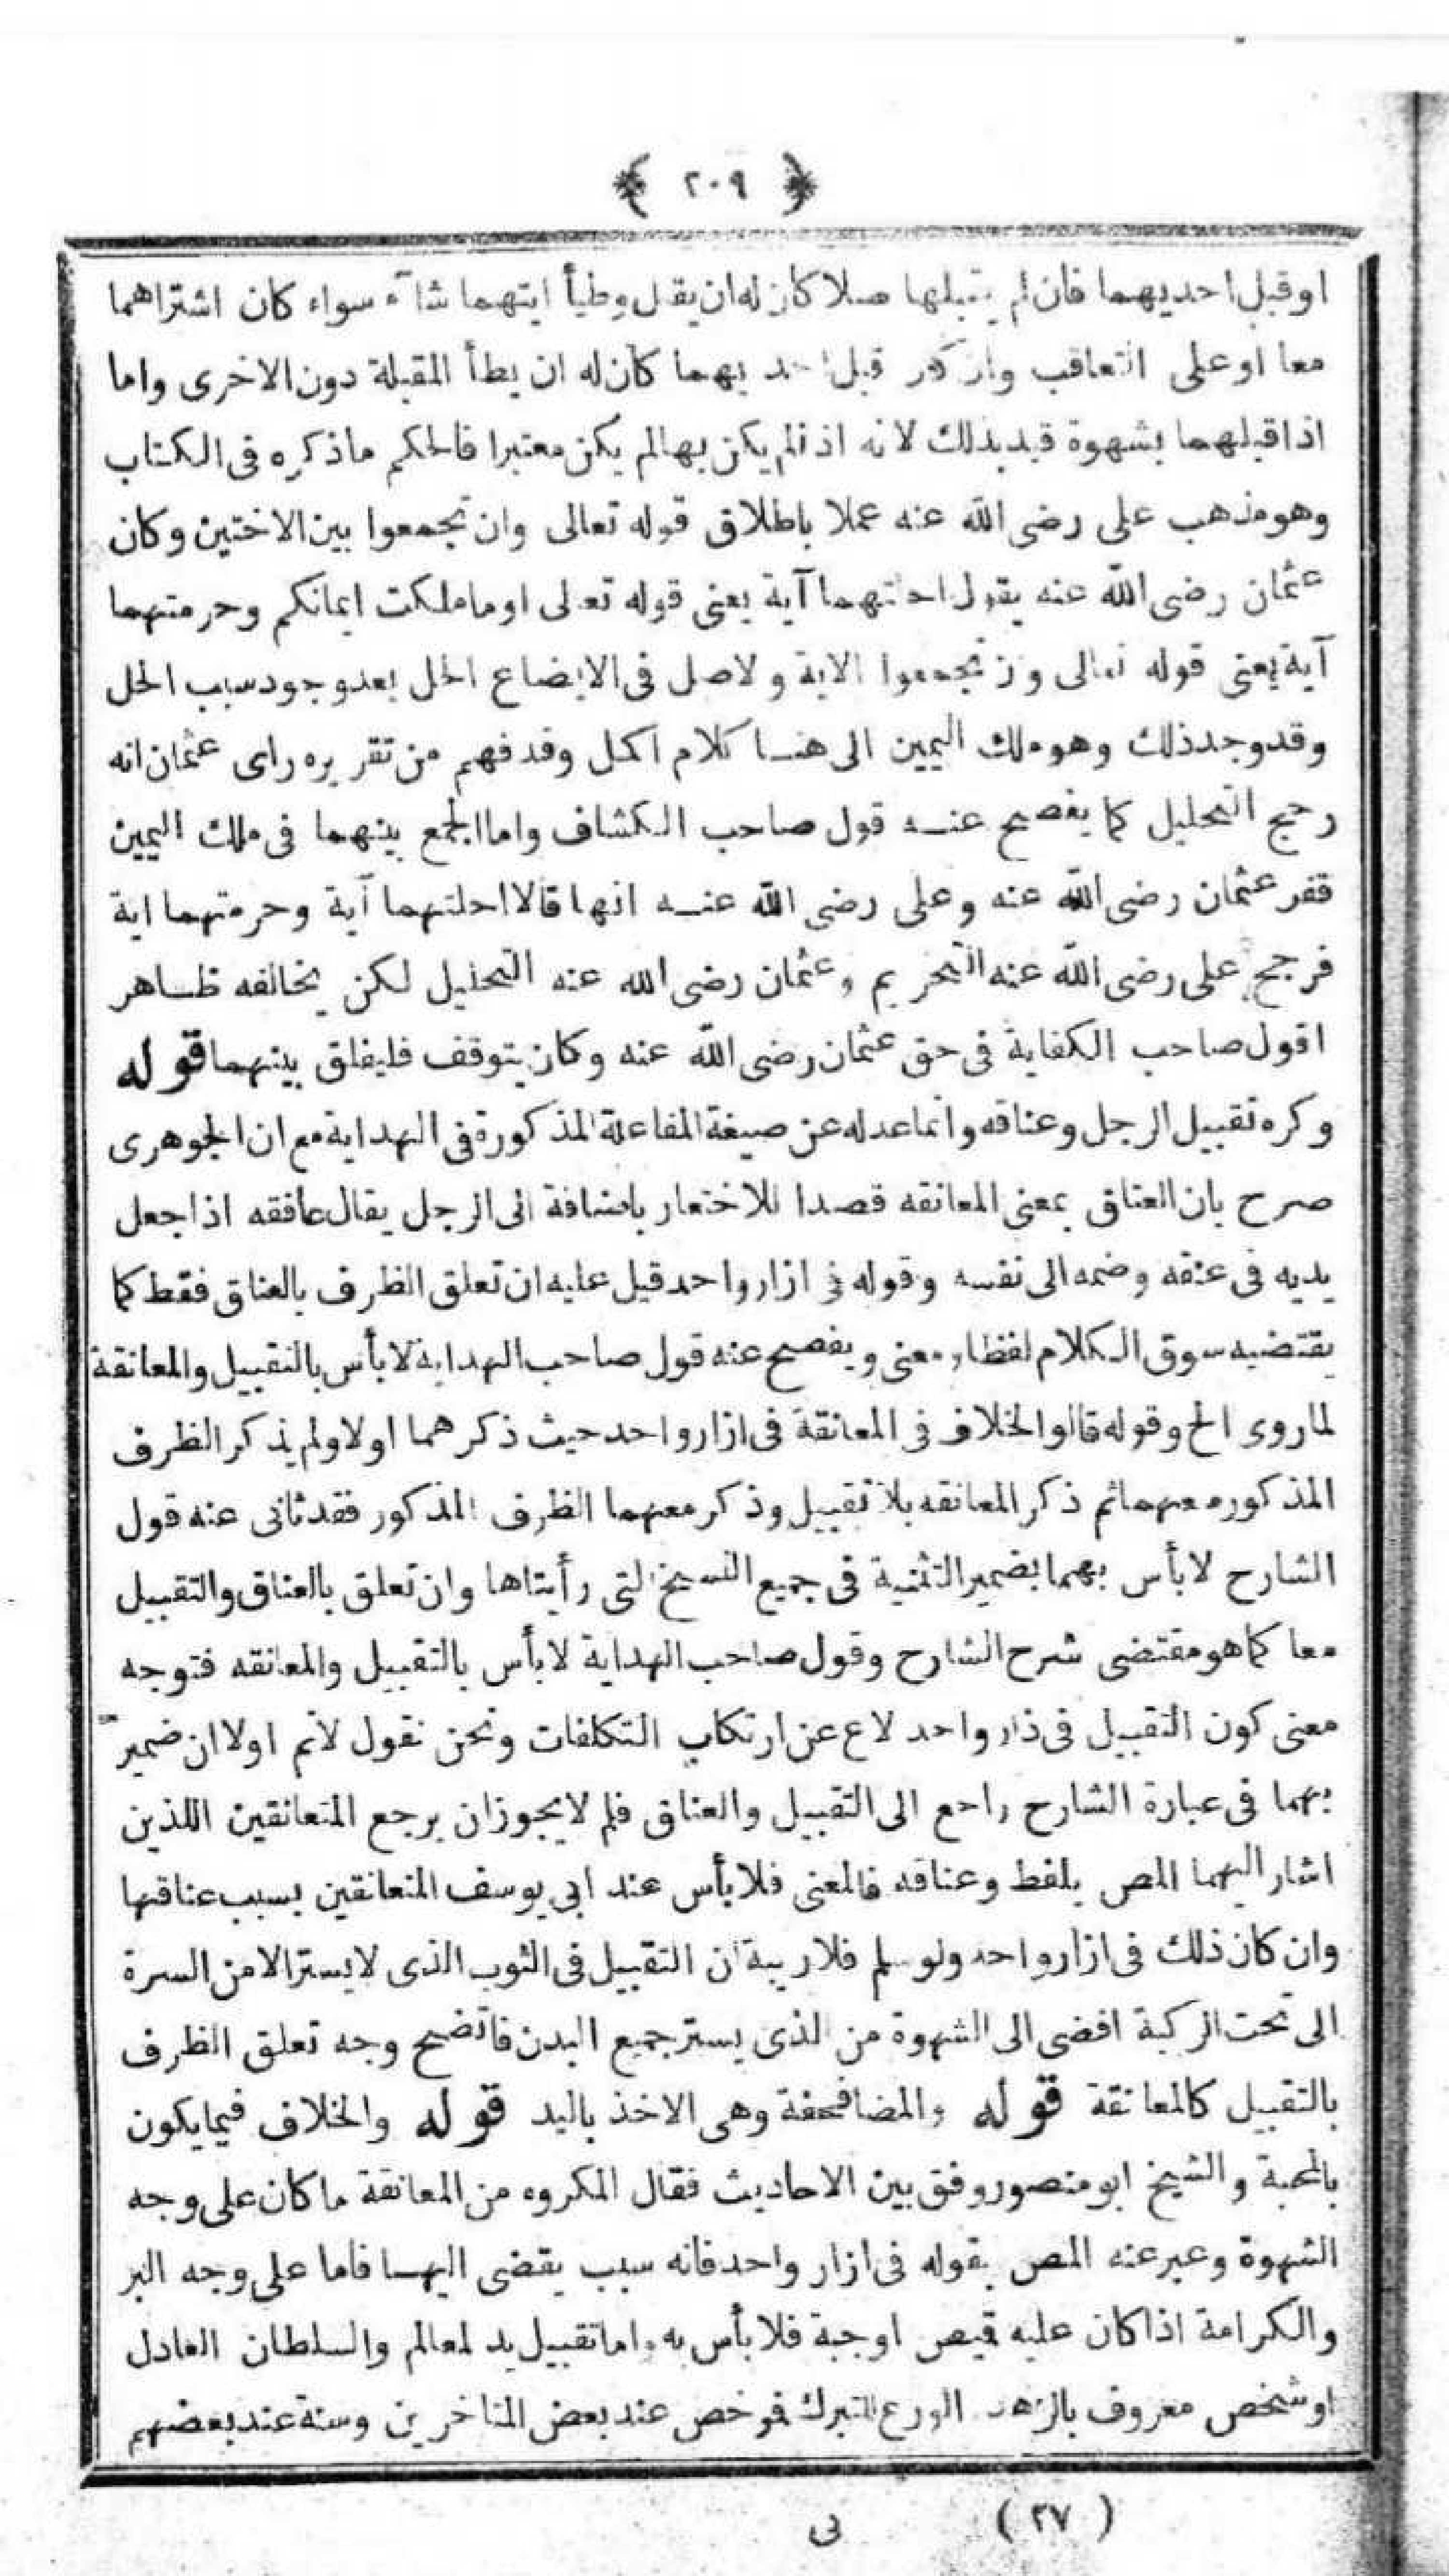 ﴿ ٢٠٩ ﴾
او قبل احديهما فان لم يقبلها اصلا كان له ان يقبل ويطأ ايتهما شاء سواء كان اشتراهما
معا او على التعاقب وان كان قبل احديهما كان له ان يطأ المقبلة دون الاخرى واما
اذا قبلهما بشهوة قيد بذلك لانه اذا لم يكن بها لم يكن معتبرا فالحكم ماذكره فى الكتاب
وهو مذهب على رضى الله عنه عملا باطلاق قوله تعالى وان تجمعوا بين الاختين وكان
عثمان رضى الله عنه يقول احلتهما آية يعنى قوله تعالى اوماملكت ايمانكم وحرمتهما
آية يعنى قوله تعالى وان تجمعوا الاية والاصل فى الابضاع الحل بعد وجود سبب الحل
وقد وجد ذلك وهو ملك اليمين الى هنا كلام اكمل وقد فهم من تقريره راى عثمان انه
رجح التحليل كما يفصح عنه قول صاحب الكشاف واما الجمع بينهما فى ملك اليمين
فعن عثمان رضى الله عنه وعلى رضى الله عنه انهما قالا احلتهما آية وحرمتهما اية
فرجح على رضى الله عنه التحريم وعثمان رضى الله عنه التحليل لكن يخالفه ظاهر
اقول صاحب الكفاية فى حق عثمان رضى الله عنه وكان يتوقف فليفلق بينهما قوله
وكره تقبيل الرجل وعناقه وانما عدله عن صيغة المفاعلة المذكورة فى الهداية مع ان الجوهرى
صرح بان العناق بمعنى المعانقه قصدا للاختصار باضافة الى الرجل يقال عانقه اذا جعل
يديه فى عنقه وضمه الى نفسه وقوله فى ازار واحد قيل عليه ان تعلق الظرف بالعناق فقط كما
يقتضيه سوق الكلام لفظا ومعنى ويفصح عنه قول صاحب الهداية لابأس بالتقبيل والمعانقة
لماروى الخ وقوله قالوا الخلاف فى المعانقة فى ازار واحد حيث ذكرهما اولا ولم يذكر الظرف
المذكور معهما ثم ذكر المعانقه بلا تقبيل وذكر معهما الظرف المذكور فقد ثانى عنه قول
الشارح لابأس بهما بضمير التثنية فى جميع النسخ التى رأيتاها وان تعلق بالعناق والتقبيل
معا كما هو مقتضى شرح الشارح وقول صاحب الهداية لابأس بالتقبيل والمعانقه فتوجه
معنى كون التقبيل فى ذار واحد لاع عن ارتكاب التكلفات ونحن نقول لانم اولا ان ضمير
بهما فى عبارة الشارح راجع الى التقبيل والعناق فلم لايجوز ان يرجع المتعانقين اللذين
اشار اليهما المص بلفظ وعناقه فالمعنى فلابأس عند ابى يوسف المتعانقين بسبب عناقها
وان كان ذلك فى ازار واحد ولو سلم فلاريبة ان التقبيل فى الثوب الذى لايستر الا من السرة
الى تحت الركبة افضى الى الشهوة من الذى يستر جميع البدن فاتضح وجه تعلق الظرف
بالتقبيل كالمعانقة قوله والمصافحة وهى الاخذ باليد قوله والخلاف فيما يكون
بالمحبة والشيخ ابو منصور وفق بين الاحاديث فقال المكروه من المعانقة ماكان على وجه
الشهوة وعبر عنه المص بقوله فى ازار واحد فانه سبب يقضى اليها فاما على وجه البر
والكرامة اذا كان عليه قيص اوجبة فلابأس به واما تقبيل يد لعالم والسلطان العادل
او شخص معروف بالزهد الورع للتبرك فرخص عند بعض المتاخرين وسنة عند بعضهم
( ٢٧ ) نى